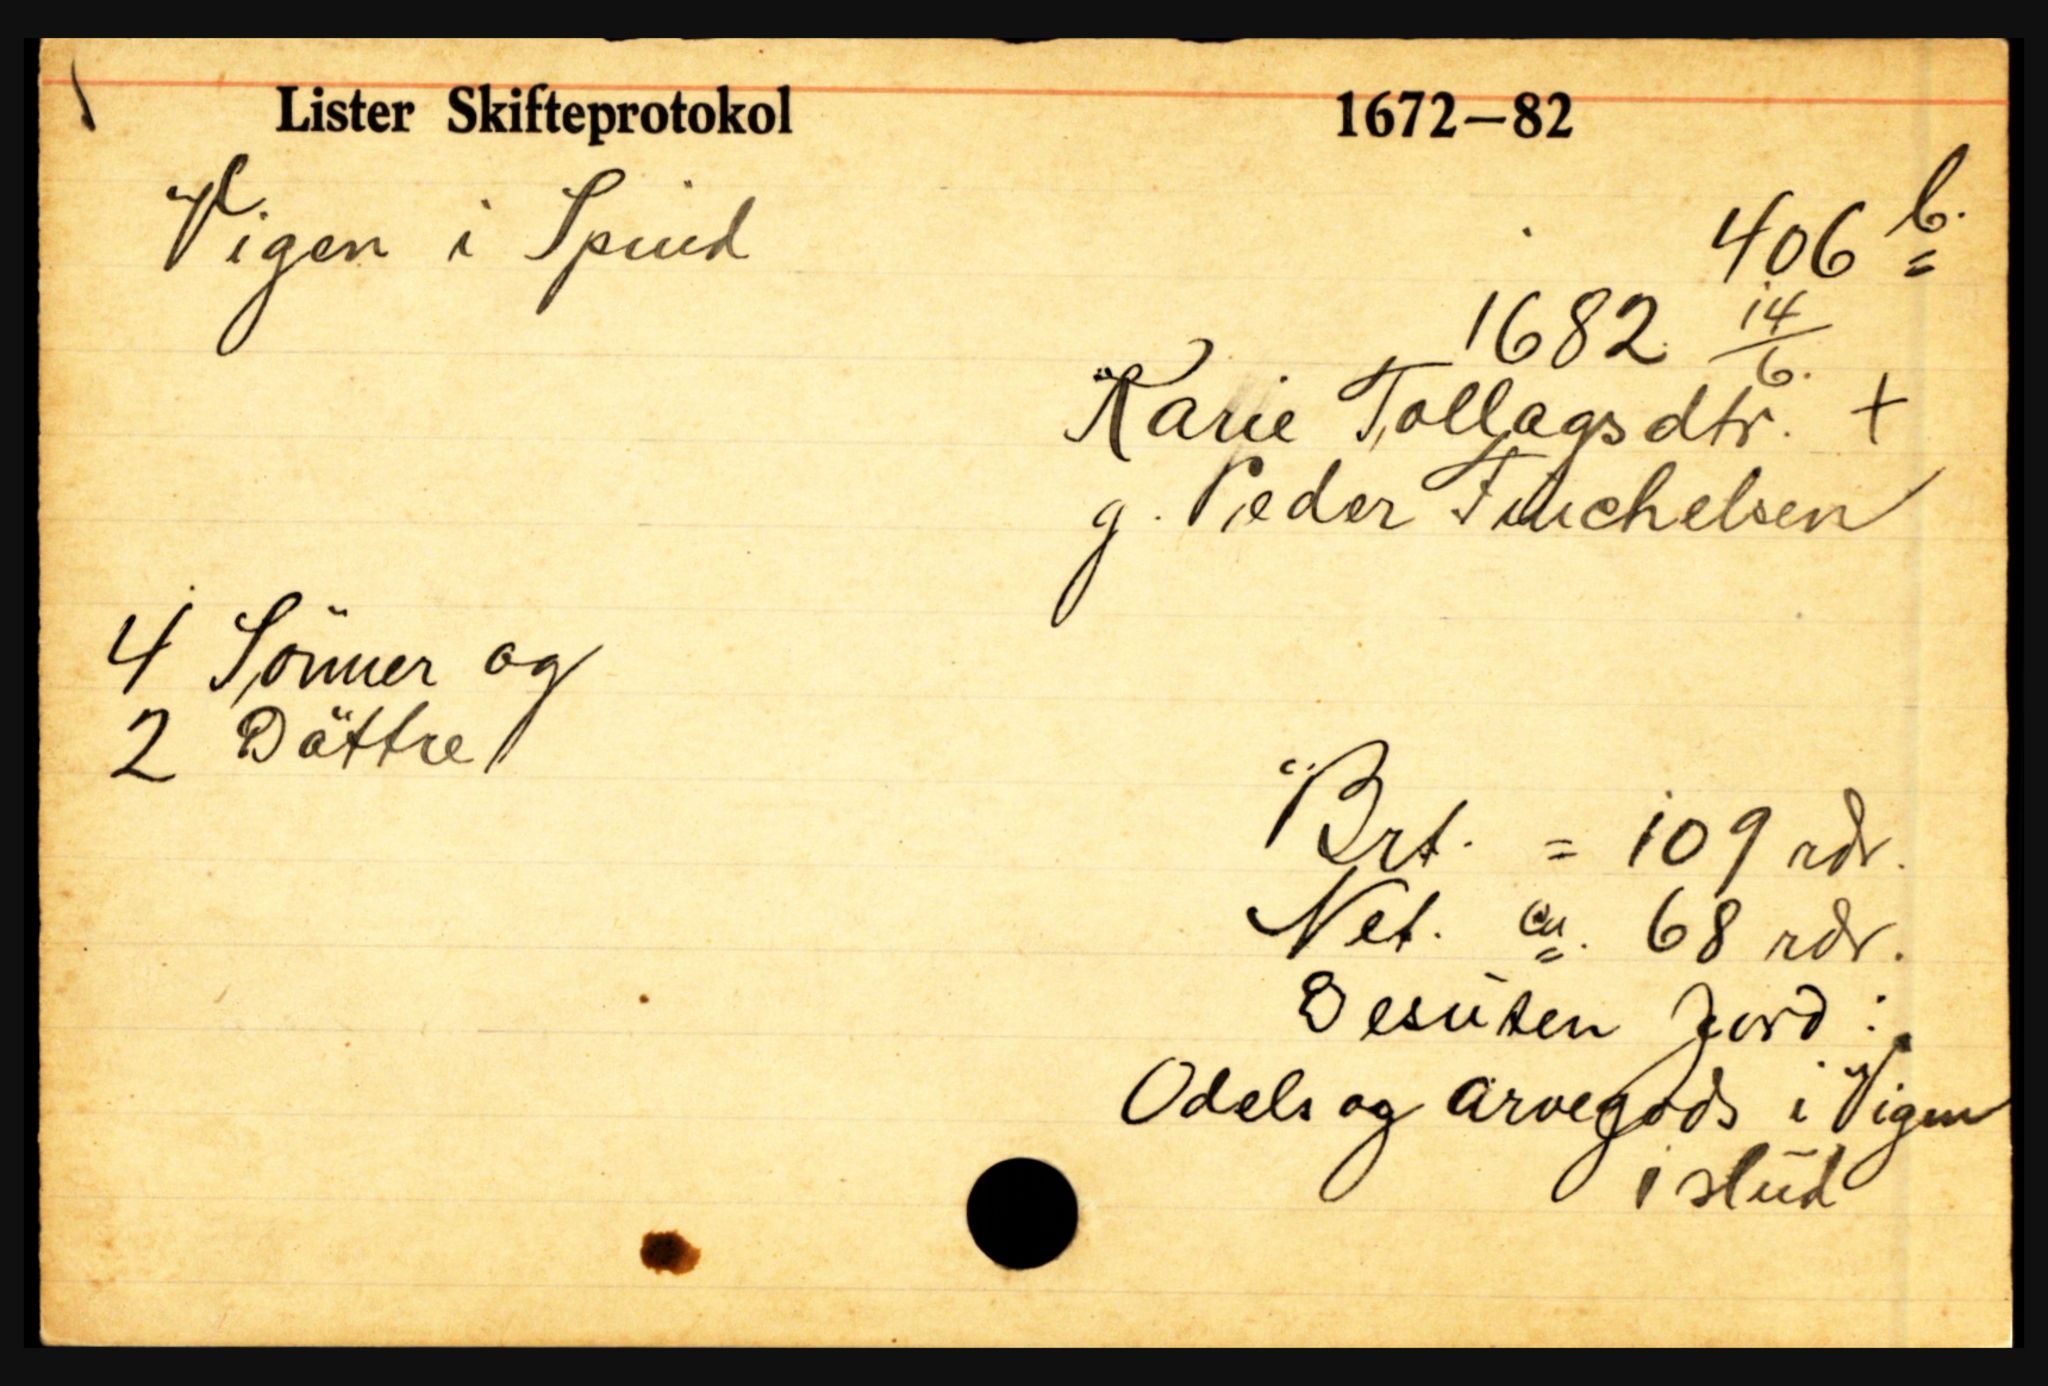 Lister Skifteprotokol 1672—82
Vigen i Spind
406 b.
1682 14/6.
Karie Tollagsdtr. +
g. Peder Finchelsen
4 Sönner og
2 Döttre
Brt. = 109 rdr.
Net. ca. 68 rdr.
Desuten Jord:
Odels og arvegods i Vigen
i slūd